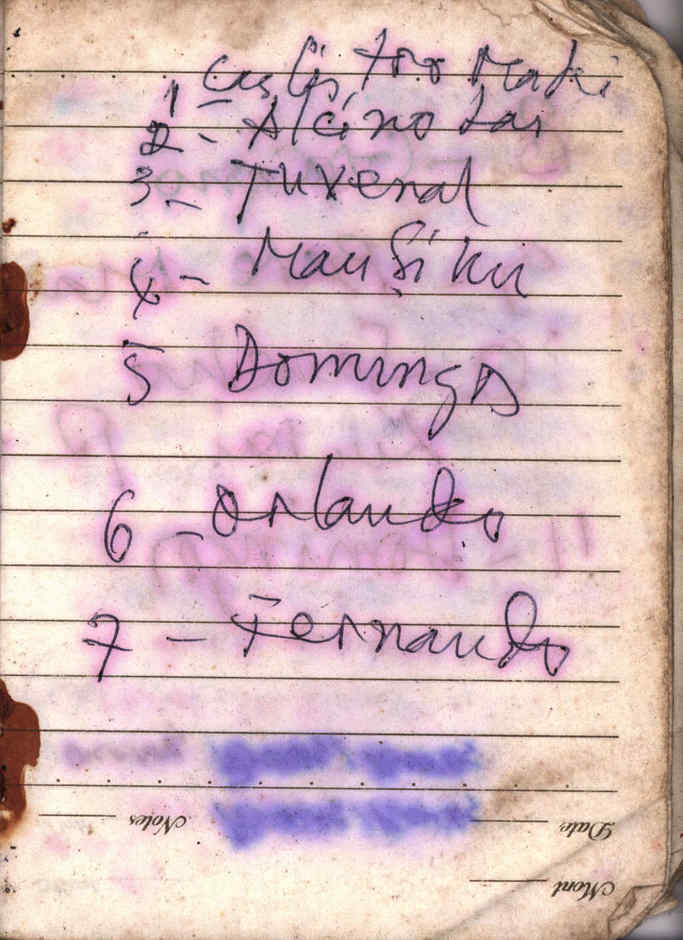 1 - Caslis, tro Maki
2 - Alcino Lai
3 - Juvenal
4 - Mau Siku
5 Domingos
6 - Orlando
7 - Fernando
Notes Date
Mont